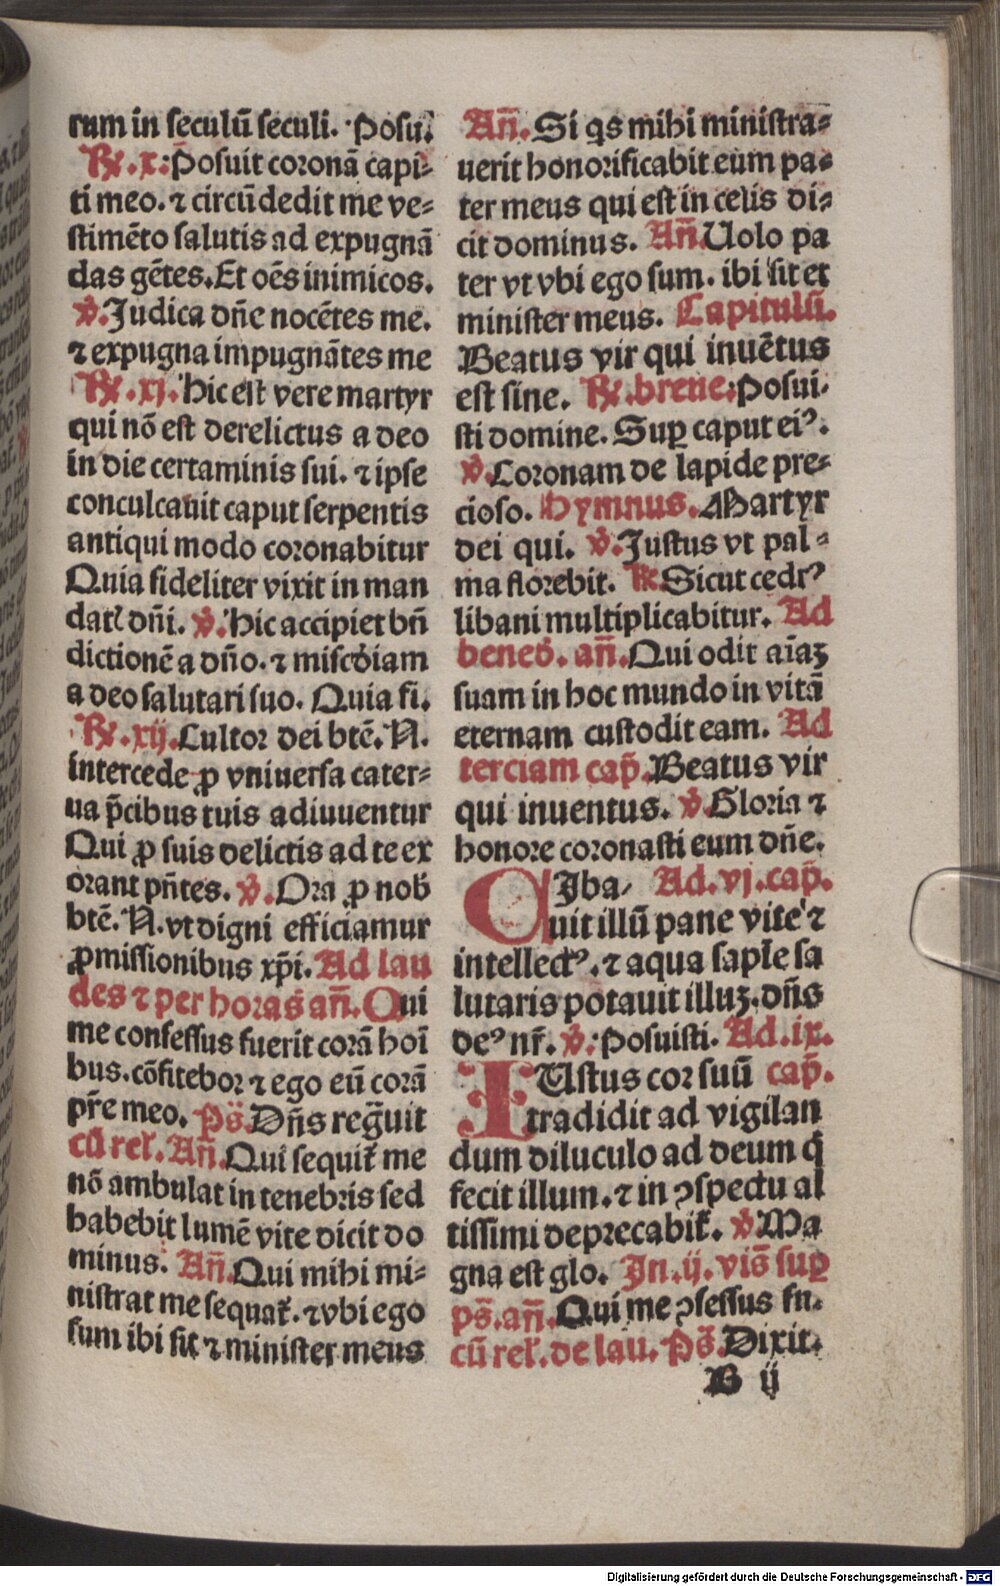 rum in seculū seculi. Posu.
℟. x. Posuit coronā capi⸗
ti meo. ⁊ circūdedit me ve⸗
stimēto salutis ad expugnā
das gētes. Et oēs inimicos.
℣. Judica dn̄e nocētes me.
⁊ expugna impugnātes me
℟. xj. Hic est vere martyr
qui nō est derelictus a deo
in die certaminis sui. ⁊ ipse
conculcauit caput serpentis
antiqui modo coronabitur
Quia fideliter vixit in man
datꝭ dn̄i. ℣. Hic accipiet bn̄
dictionē a dn̄o. ⁊ miscd̕iam
a deo salutari suo. Quia fi.
℟. xij. Cultor dei btē. N.
intercede ꝓ vniuersa cater⸗
ua p̄cibus tuis adiuuentur
Qui ꝓ suis delictis ad te ex
orant pn̄tes. ℣. Ora ꝓ nob̕
btē. N. vt digni efficiamur
ꝓmissionibus xp̄i. Ad lau
des ⁊ per horas an̄. Qui
me confessus fuerit corā hoī
bus. cōfitebor ⁊ ego eū corā
pr̄e meo. Ps̄. Dn̄s reḡuit
cū rel̕. An̄. Qui sequit᷑ me
nō ambulat in tenebris sed
habebit lumē vite dicit do
minus. An̄. Qui mihi mi⸗
nistrat me sequat᷑. ⁊ vbi ego
sum ibi sit ⁊ minister meus
An̄. Si qs mihi ministra⸗
uerit honorificabit eum pa⸗
ter meus qui est in celis di⸗
cit dominus. An̄. Uolo pa
ter vt vbi ego sum. ibi sit et
minister meus. Capitulū.
Beatus vir qui inuētus
est sine. ℟. breue. Posui⸗
sti domine. Suꝑ caput eiꝰ.
℣. Coronam de lapide pre⸗
cioso. Hymnus. Martyr
dei qui. ℣. Justus vt pal⸗
ma florebit. ℟. Sicut cedrꝰ
libani multiplicabitur. Ad
bened̕. an̄. Qui odit aīaꝫ
suam in hoc mundo in vitā
eternam custodit eam. Ad
terciam cap̄. Beatus vir
qui inuentus. ℣. Gloria ⁊
honore coronasti eum dn̄e.
CIba⸗ Ad. vj. cap̄.
uit illū pane vite ⁊
intellectꝰ. ⁊ aqua saple sa
lutaris potauit illuꝫ. dn̄s
deꝰ nr̄. ℣. Posuisti. Ad. ix.
IUstus cor suū cap̄.
tradidit ad vigilan
dum diluculo ad deum q̄
fecit illum. ⁊ in ꝯspectu al
tissimi deprecabit᷑. ℣. Ma
gna est glo. In. ij. vis̄ suꝑ
ps̄. an̄. Qui me ꝯfessus fu.
cū rel̕. de lau. Ps̄. Dixit.
B ij
Digitalisierung gefördert durch die Deutsche Forschungsgemeinschaft - DFG